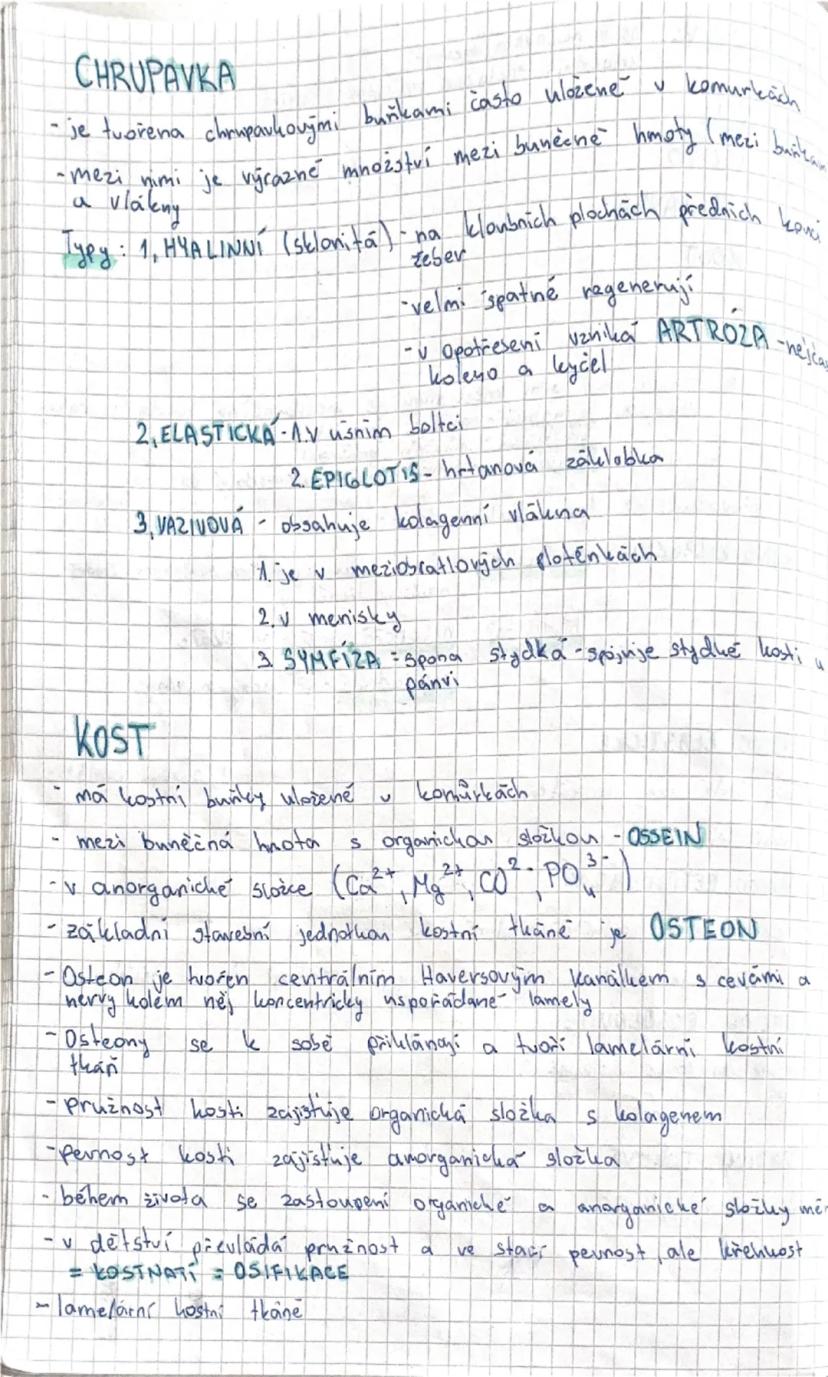 CHRUPAVKA
- je tvořena chrupavkovými buňkami často uložené v komurkách
- mezi nimi je výrazné množství mezi buněčné hmoty (mezi
a vlákny
Typy: 1, HYALINNÍ (sklovitá) - na kloubních plochách předních
žeber
- velmi špatně regenerují
- v opotřesení vzniká ARTRÓZA -
koleno a kyčel
2, ELASTICKÁ - 1. v ušním boltci
2. EPIGLOTIS - hrtanová záklobka
3, VAZIVOVÁ - obsahuje kolagenní vlákna
1. je v meziobratlových ploténkách
2. v menisky
3. SYMFÍZA = spona stydká - spojuje stydké kosti v
pánvi
KOST
- má kostní buňky uložené v komůrkách
- mezi buněčná hmota s organickou složkou - OSSEIN
- v anorganické složce (Ca²⁺, Mg²⁺, CO²⁻, PO₄³⁻)
- základní stavební jednotkou kostní tkáně je OSTEON
- Osteon je tvořen centrálním Haversovým kanálkem s cevámi a
nervy kolem něj koncentricky uspořádané lamely
- Osteony se k sobě přiklánají a tvoří lamelární kostní
tkáň
- pružnost kosti zajišťuje organická složka s kolagenem
- pevnost kosti zajišťuje anorganická složka
- během života se zastoupení organické a anorganické složky
- v dětství převládá pružnost a ve staří pevnost, ale křehkost
= KOSTNATÍ = OSIFIKACE
- lamelární kostní tkáně